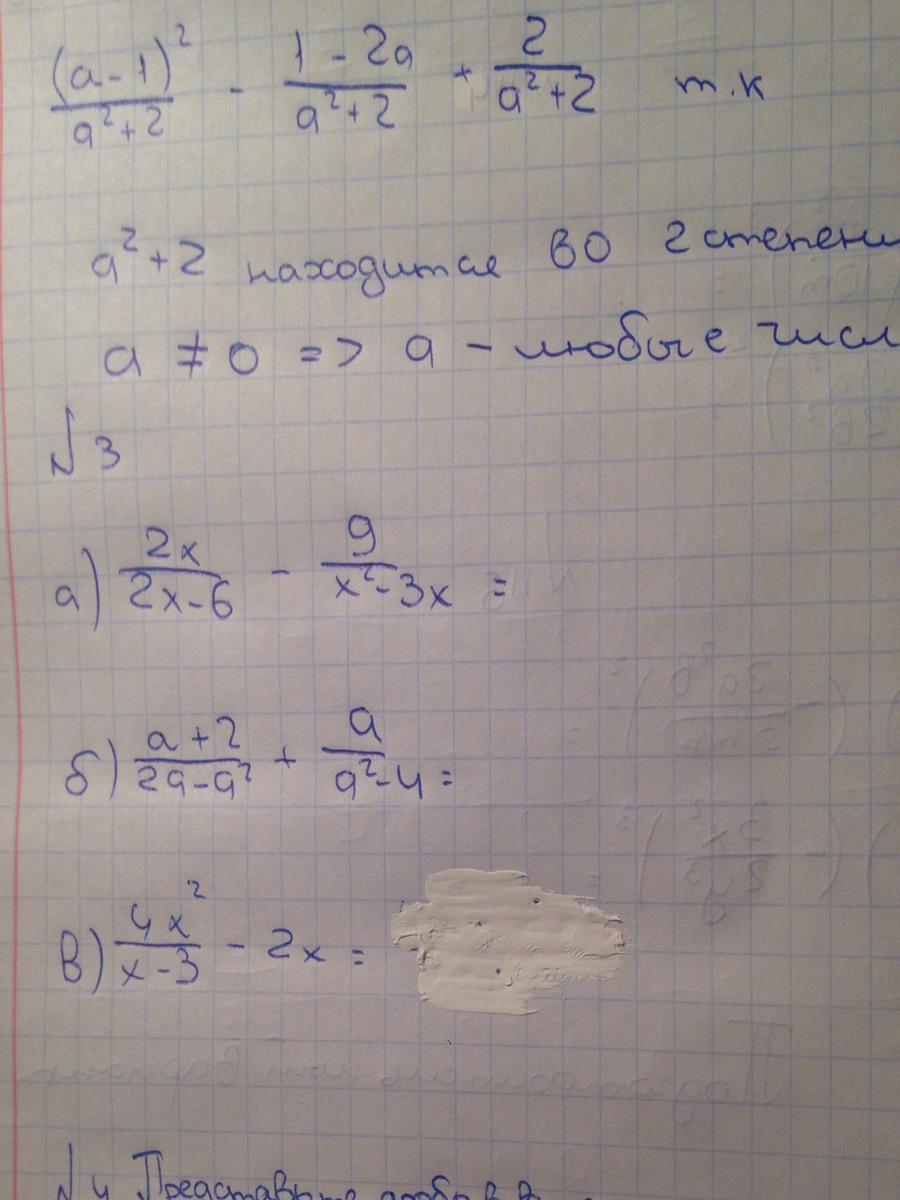 (a-1)²/(a²+2) - (1-2a)/(a²+2) + 2/(a²+2) т.к
a²+2 находится во 2 степени
a ≠ 0 => a - любые числ
№3
а) 2x/(2x-6) - 9/(x²-3x) =
б) (a+2)/(2a-a²) + a/(a²-4) =
в) 4x²/(x-3) - 2x =
№4 Представьте